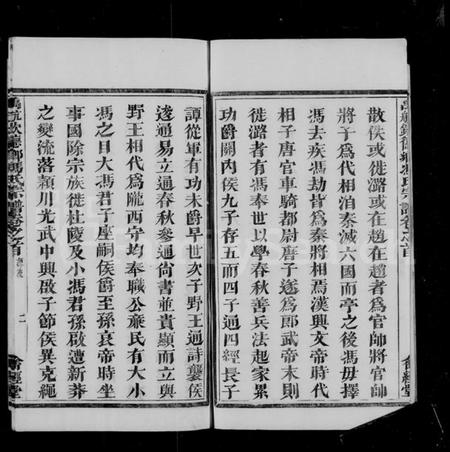 散侯或徙潞或在趙在趙者爲官帥將官帥
將子爲代相洎秦滅六國而亭之後馮毋擇
馮去疾馮劫皆爲秦將相焉漢興文帝時代
相子唐官車騎都尉唐子遂爲郎武帝末則
徙潞者有馮奉世以學春秋善兵法起家累
功爵關内侯九子存五而四子通四經長子
譚從軍有功未爵早世次子野王通詩襲侯
逡通易立通春秋參通尚書並貴顯而立與
野王相代爲隴西守均奉職公亷民有大小
馮之目大馮君子座嗣侯爵至孫衷帝時坐
事國除宗族徙杜陵及小馮君孫啟遭新莽
之變流落潁川光武中興啟子節侯異克繩
德鄉馮氏宗譜卷之首 二 會經堂